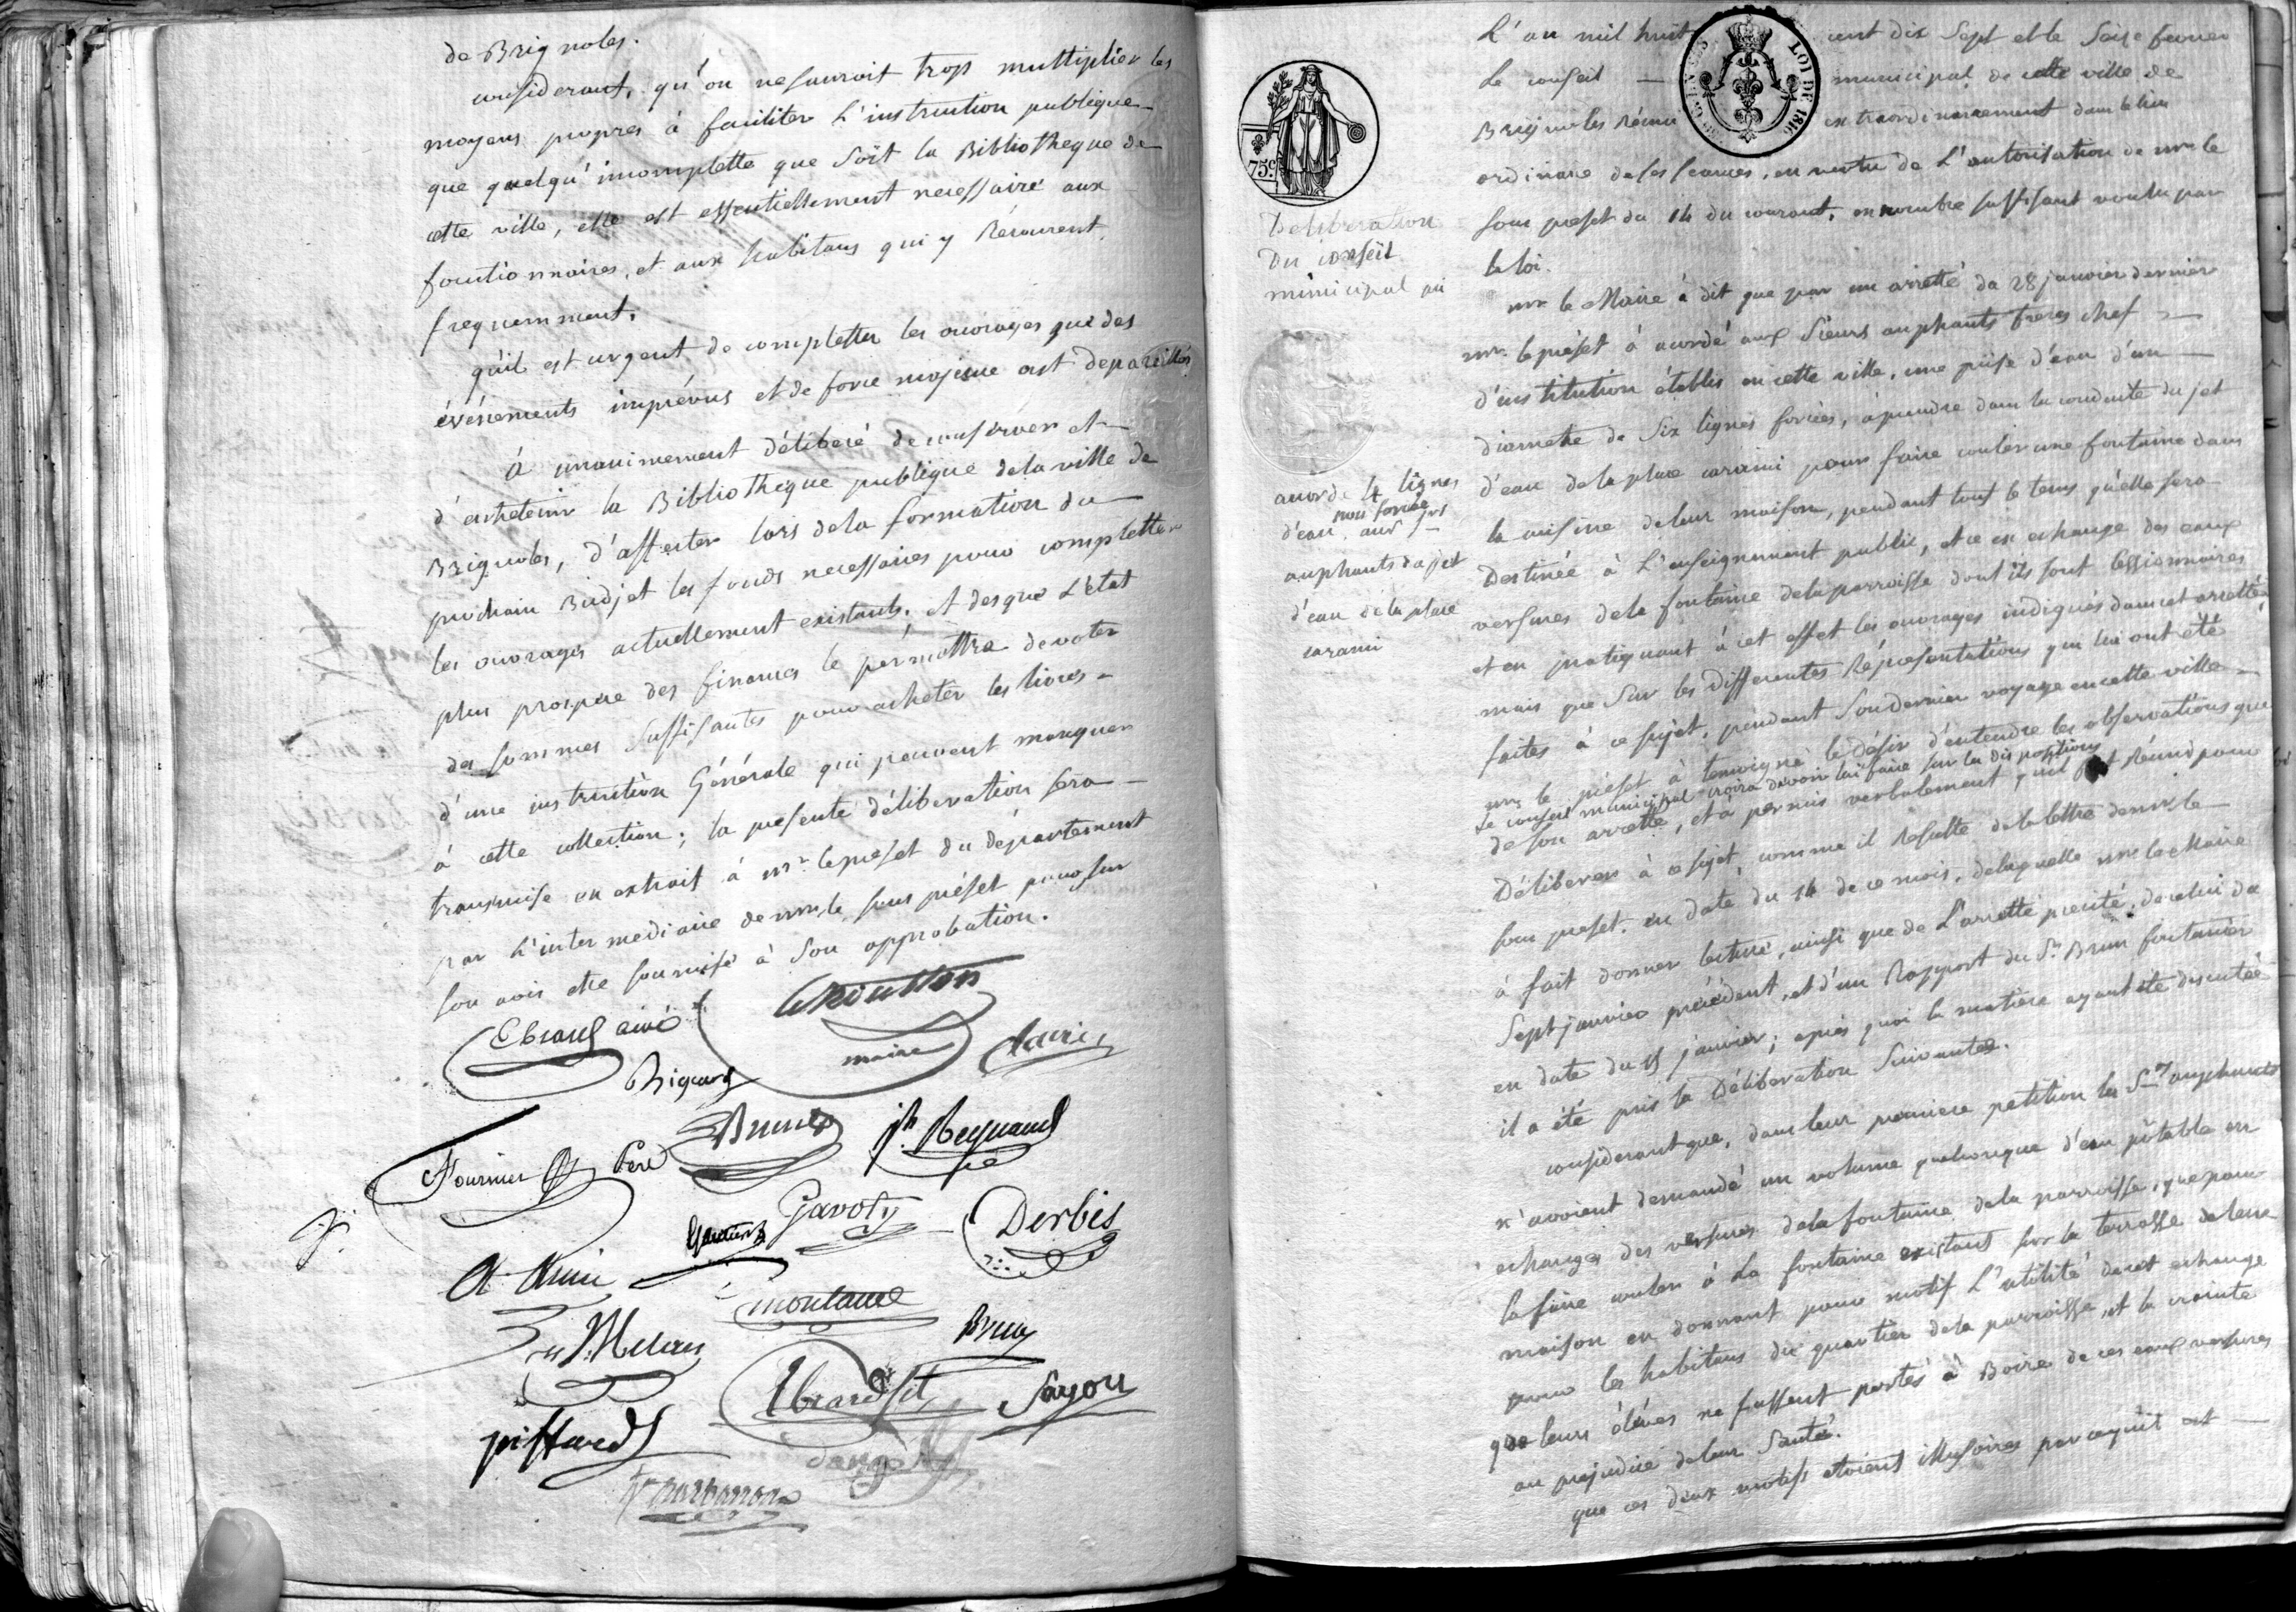 de Brignoles.
considerant, qu'on ne sauroit trop multiplier les
moyens propres à faciliter L'instruction publique
que quelqu'incomplette que soit la Bibliotheque de
cette ville, elle est essentiellement necessaire aux
fonctionnaires, et aux habitans qui y Recourent
frequemment.
qu'il est urgent de completter les ouvrages que des
événements imprévus et de force majeure ont depareillés
à unanimement délibéré de conserver et
d'entretenir la Bibliotheque publique de la ville de
Brignoles, d'affecter lors de la formation du
prochain Budjet les fonds necessaires pour completter
les ouvrages actuellement existants, et des que L'état
plus prospere des finances le permettra de voter
des sommes suffisantes pour acheter les livres
d'une instruction Générale qui peuvent manquer
à cette collection; la presente déliberation sera
transmise en extrait à Mr. le prefet du département
par L'intermediaire de mr le sous préfet pour sur
son avis etre soumise à son approbation.
Ebrard ainé
maire
Clavier
Rigaud
Brunet
jh Reynaud
Fournier Père
Gavoty
Derbès
A Amic
montaud
Brun
Ebrard
Sayou
piffard
L'an mil huit cent dix Sept et le Seize fevrier
LOI DE 1816
Le conseil municipal de cette ville de
Brignoles Réuni extraordinairement dans le lieu
ordinaire de ses seances, en vertu de L'autorisation de mr le
sous prefet du 14 du courant, en nombre suffisant voulu par
la loi.
75c.
Deliberation
Du conseil
municipal qui
accorde 4 lignes
non forcée
d'eau aux srs
auphants du jet
d'eau de la place
carami
mr le Maire à dit que par un arretté du 28 janvier dernier
mr. le préfet à accordé aux Sieurs auphants freres chef
d'institution établis en cette ville, une prise d'eau d'un
diametre de Six lignes forcées, à prendre dans la conduite du jet
d'eau de la place carami pour faire couler une fontaine dans
la cuisine de leur maison, pendant tout le tems qu'elle sera
Destinée à L'enseignement public, et ce en echange des eaux
versures de la fontaine de la parroisse dont ils sont Cessionnaires
et en pratiquant à cet effet les ouvrages indiqués dans cet arretté,
mais que sur les differentes Représentations qui lui ont été
faites à ce sujet, pendant son dernier voyage en cette ville
mr le préfet à temoigné le désir d'entendre les observations que
le conseil municipal croira devoir lui faire sur les dispositions
de son arretté, et à permis verbalement qu'il fut Réuni pour
Déliberer à ce sujet, comme il Résulte de la lettre de mr le
sous prefet. en date du 14 de ce mois, de laquelle mr le Maire
à fait donner lecture, ainsi que de L'arretté precité, de celui du
Sept janvier précédent, et d'un Rapport du Sr. Brun fontainier
en date du 15 janvier; après quoi la matiere ayant été discutée
il a été pris la Déliberation Suivante.
considerant que, dans leur premiere petition les Srs auphants
n'avoient demandé un volume quelconque d'eau potable en
echange des versures de la fontaine de la parroisse, que pour
la faire couler à La fontaine existant sur la terrasse de leur
maison en donnant pour motif L'utilité de cet echange
pour les habitans du quartier de la parroisse, et la crainte
que leurs élèves ne fussent portés à Boire de ces eaux versures
au prejudice de leur Santé.
que ces deux motifs etoient illusoires parcequ'il est